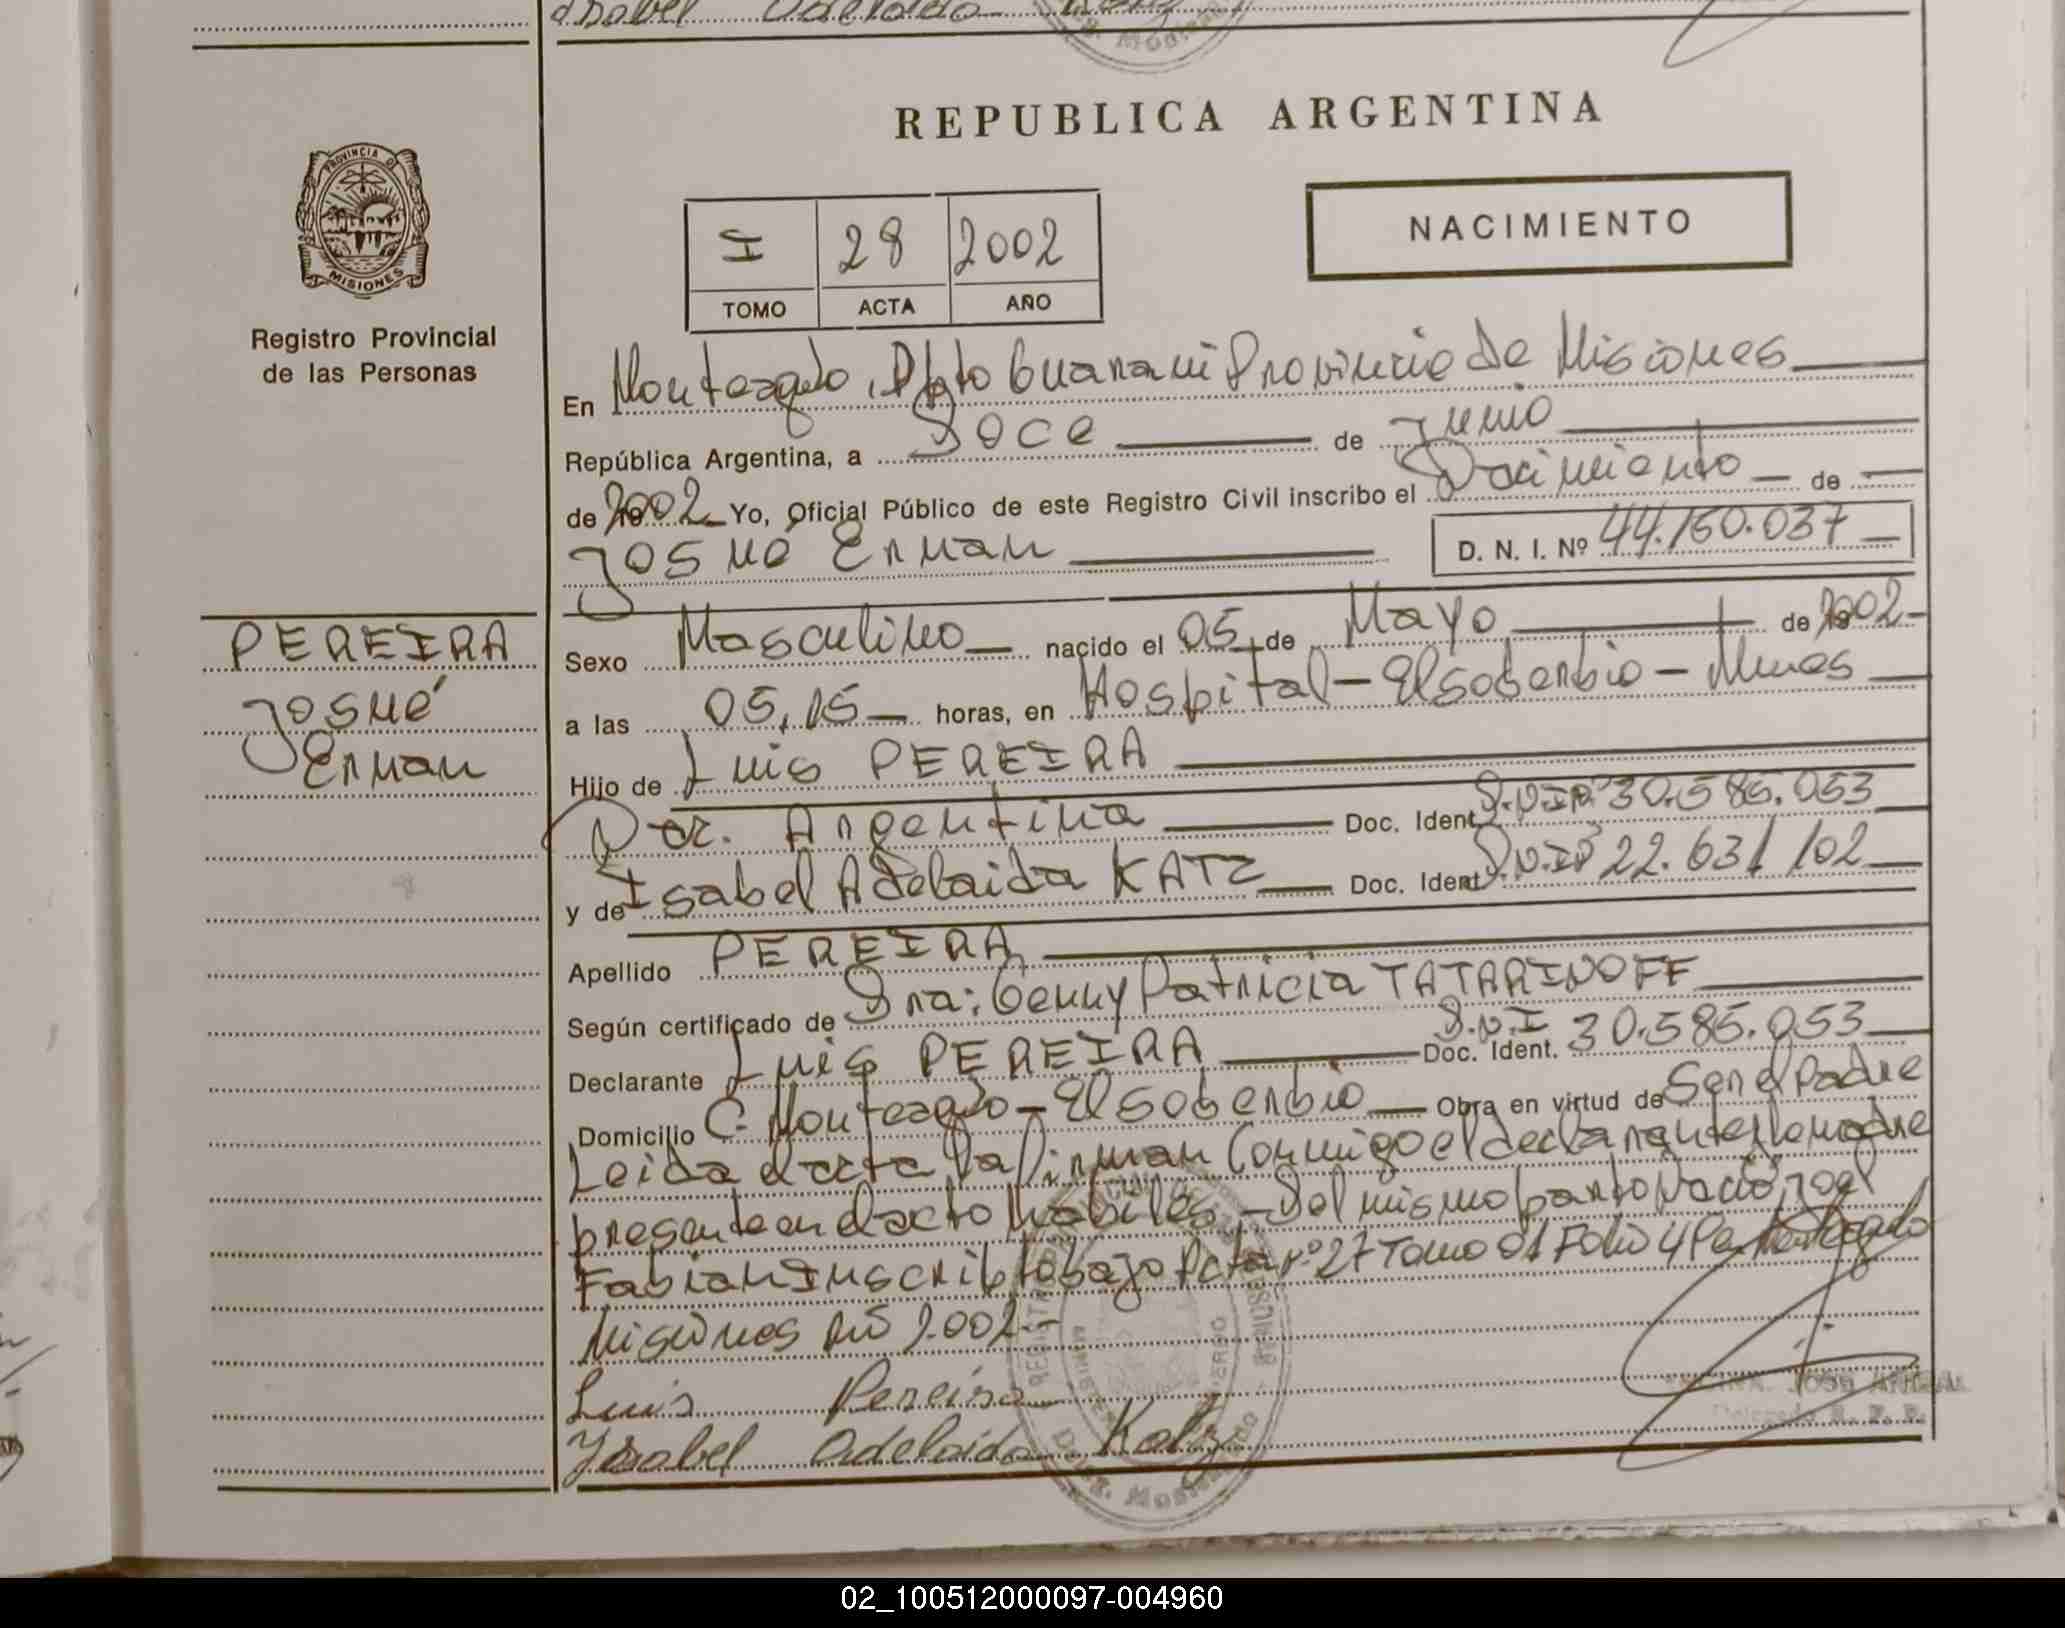 Isabel Adelaida
REPUBLICA ARGENTINA
PROVINCIA DE
MISIONES
Registro Provincial
de las Personas
I 28 2002
TOMO ACTA AÑO
NACIMIENTO
En Monteagudo, Dpto Guarani Provincia de Misiones
República Argentina, a Doce de Junio
de 2002 Yo, Oficial Público de este Registro Civil inscribo el Nacimiento de
Josué Erman D. N. I. Nº 44.160.037
PEREIRA
Josué
Erman
Sexo Masculino nacido el 05 de Mayo de 2002
a las 05,15 horas, en Hospital - El soberbio - Mnes
Hijo de Luis PEREIRA
Nac. Argentina Doc. Ident. D.N.I Nº 30.585.053
y de Isabel Adelaida KATZ Doc. Ident. D.N.I Nº 22.631.102
Apellido PEREIRA
Según certificado de Dra: Genny Patricia TATARINOFF
Declarante Luis PEREIRA Doc. Ident. D.N.I 30.585.053
Domicilio C. Monteagudo - El soberbio Obra en virtud de Ser el Padre
Leida el acta la firman Conmigo el declarante y la madre
presente en el acto habiles - Del mismo parto Nació Joel
Fabian Inscripto bajo Acta nº 27 Tomo 01 Folio 4 Monteagudo
Misiones Año 2.002.-
Luis Pereira
Ysabel Adelaida Katz
JOSE ANIBAL
Delegado R. P. P.
02_100512000097-004960